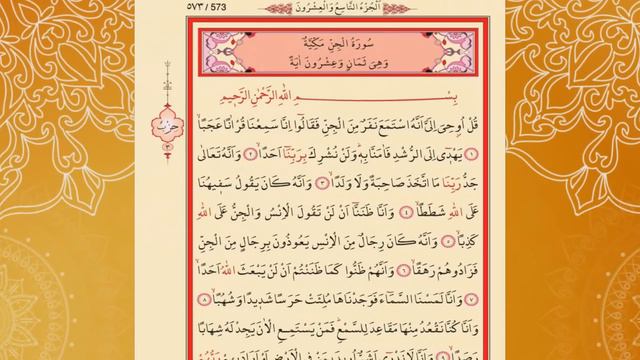 ٥٧٣ / 573
اَلْجُزْءُ التَّاسِعُ وَالْعِشْرُونَ
سُورَةُ الْجِنِّ مَكِّيَّةٌ
وَهِيَ ثَمَانٍ وَعِشْرُونَ اٰيَةً
بِسْــــمِ اللّٰهِ الرَّحْمٰنِ الرَّحِيمِ
قُلْ اُوحِيَ اِلَيَّ اَنَّهُ اسْتَمَعَ نَفَرٌ مِنَ الْجِنِّ فَقَالُٓوا اِنَّا سَمِعْنَا قُرْاٰنًا عَجَبًاۙ
﴿١﴾ يَهْدٓي اِلَى الرُّشْدِ فَاٰمَنَّا بِهٖۜ وَلَنْ نُشْرِكَ بِرَبِّنَٓا اَحَدًاۙ ﴿٢﴾ وَاَنَّهُ تَعَالٰى
جَدُّ رَبِّنَا مَا اتَّخَذَ صَاحِبَةً وَلَا وَلَدًاۙ ﴿٣﴾ وَاَنَّهُ كَانَ يَقُولُ سَفٖيهُنَا
عَلَى اللّٰهِ شَطَطًاۙ ﴿٤﴾ وَاَنَّا ظَنَنَّٓا اَنْ لَنْ تَقُولَ الْاِنْسُ وَالْجِنُّ عَلَى اللّٰهِ
كَذِبًاۙ ﴿٥﴾ وَاَنَّهُ كَانَ رِجَالٌ مِنَ الْاِنْسِ يَعُوذُونَ بِرِجَالٍ مِنَ الْجِنِّ
فَزَادُوهُمْ رَهَقًاۙ ﴿٦﴾ وَاَنَّهُمْ ظَنُّوا كَمَا ظَنَنْتُمْ اَنْ لَنْ يَبْعَثَ اللّٰهُ اَحَدًاۙ
﴿٧﴾ وَاَنَّا لَمَسْنَا السَّمَٓاءَ فَوَجَدْنَاهَا مُلِئَتْ حَرَسًا شَدٖيدًا وَشُهُبًاۙ ﴿٨﴾
وَاَنَّا كُنَّا نَقْعُدُ مِنْهَا مَقَاعِدَ لِلسَّمْعِۜ فَمَنْ يَسْتَمِعِ الْاٰنَ يَجِدْ لَهُ شِهَابًا
حزب